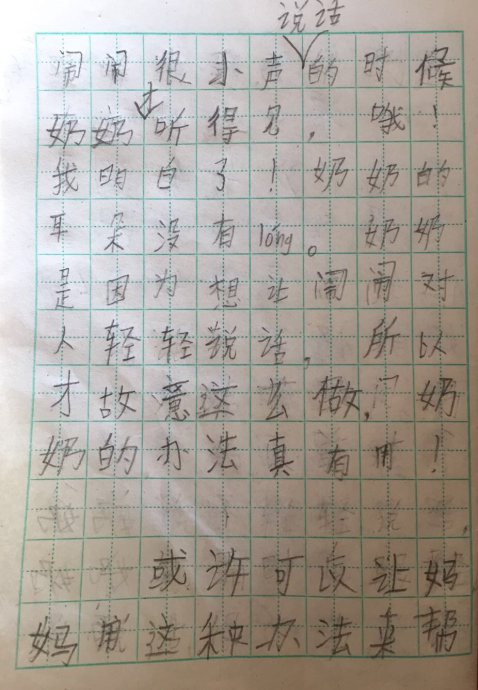 说话
闹闹很小声的时候
奶奶才听得见，哦！
我明白了！奶奶的
耳朵没有lóng。奶奶
是因为想让闹闹对
人轻轻说话，所以
才故意这么做，奶
奶的办法真有用！
或许可以让妈
妈用这种办法来帮